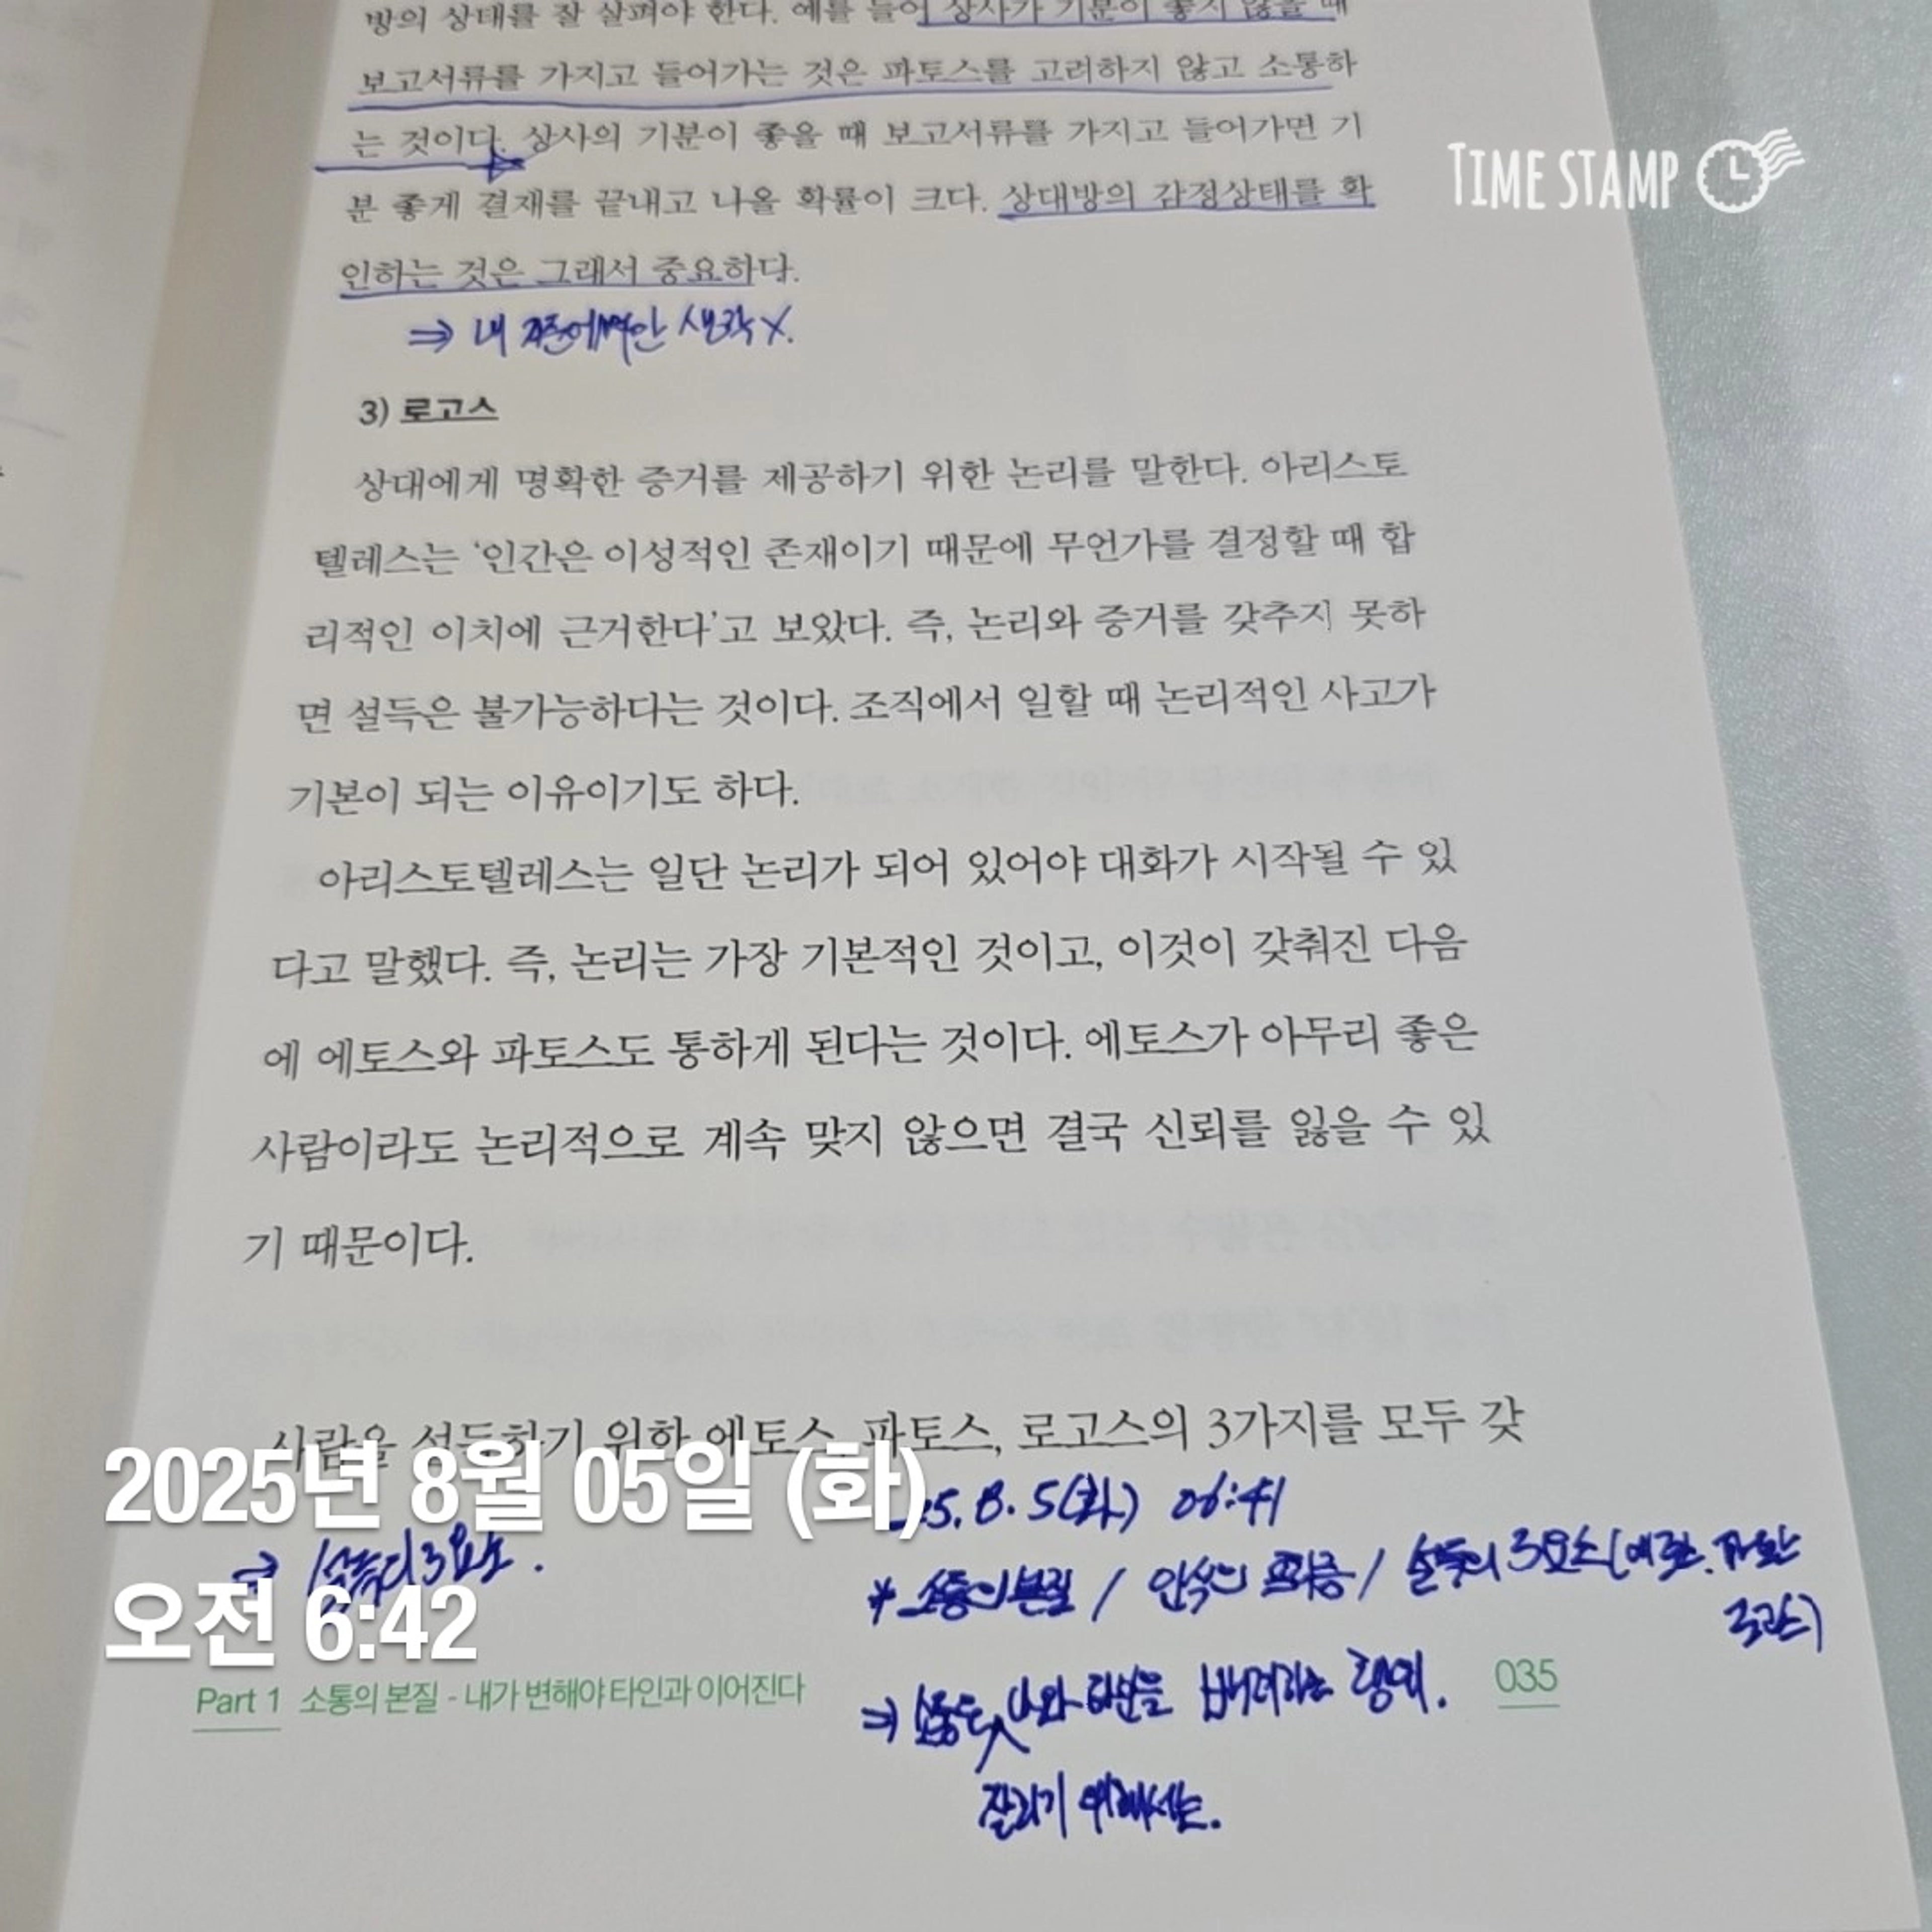 방의 상태를 잘 살펴야 한다. 예를 들어 상사가 기분이 좋지 않을 때
보고서류를 가지고 들어가는 것은 파토스를 고려하지 않고 소통하
는 것이다. 상사의 기분이 좋을 때 보고서류를 가지고 들어가면 기
분 좋게 결재를 끝내고 나올 확률이 크다. 상대방의 감정상태를 확
인하는 것은 그래서 중요하다.
⇒ 내 생각 X.
TIME STAMP
3) 로고스
상대에게 명확한 증거를 제공하기 위한 논리를 말한다. 아리스토
텔레스는 ‘인간은 이성적인 존재이기 때문에 무언가를 결정할 때 합
리적인 이치에 근거한다’고 보았다. 즉, 논리와 증거를 갖추지 못하
면 설득은 불가능하다는 것이다. 조직에서 일할 때 논리적인 사고가
기본이 되는 이유이기도 하다.
아리스토텔레스는 일단 논리가 되어 있어야 대화가 시작될 수 있
다고 말했다. 즉, 논리는 가장 기본적인 것이고, 이것이 갖춰진 다음
에 에토스와 파토스도 통하게 된다는 것이다. 에토스가 아무리 좋은
사람이라도 논리적으로 계속 맞지 않으면 결국 신뢰를 잃을 수 있
기 때문이다.
사람을 설득하기 위한 에토스, 파토스, 로고스의 3가지를 모두 갖
2025년 8월 05일 (화)
오전 6:42
25. 8. 5(화) 06:41
⇒ 설득의 3요소.
* 소통의 본질 / 인식의 / 설득의 3요소 (에토스. 파토스
로고스)
⇒ 소통도 나와 타인을 행위.
잘하기 위해서는.
Part 1 소통의 본질 - 내가 변해야 타인과 이어진다
035